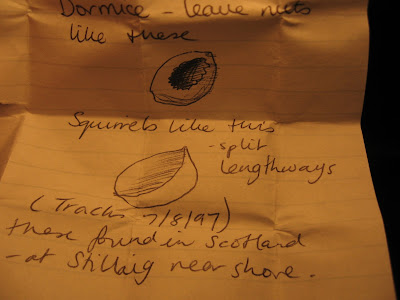 Dormice - leave nuts
like these
Squirrels like this
- split
lengthways
(Tracks 7/8/97)
these found in Scotland
- at Stillaig near shore.